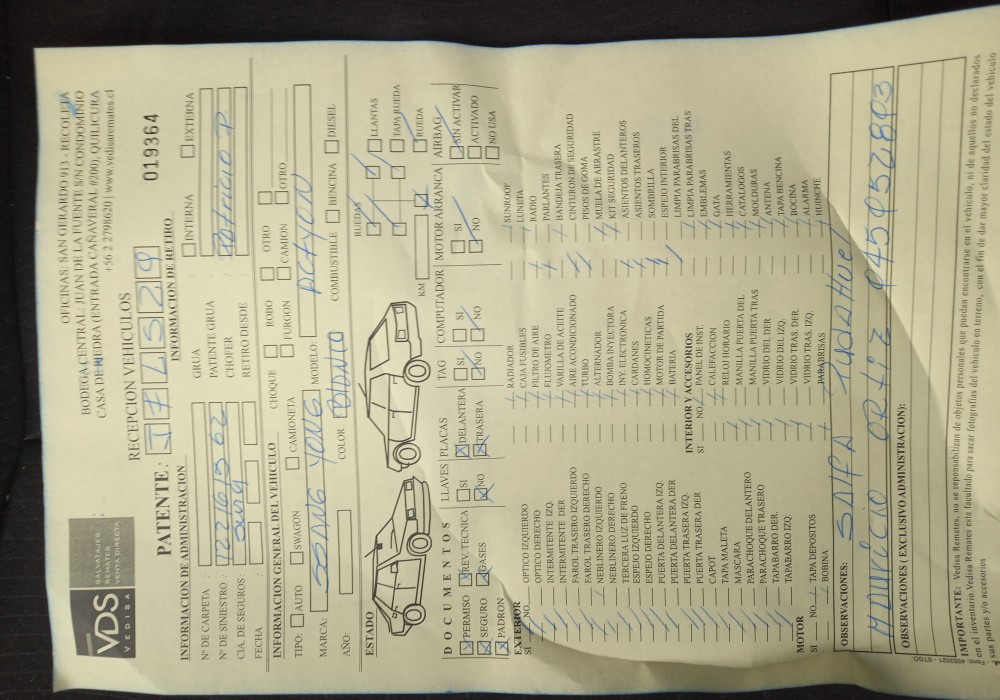 VDS
VEDISA
SALVATAJES
REMATES
VENTA DIRECTA
OFICINAS: SAN GERARDO 913 - RECOLETA
BODEGA CENTRAL: JUAN DE LA FUENTE S/N CONDOMINIO
CASA DE PIEDRA (ENTRADA CAÑAVERAL #200), QUILICURA
+56 2 27986201 | www.vedisaremates.cl
RECEPCION VEHICULOS
019364
PATENTE: J7L529
INFORMACION DE RETIRO
INTERNA EXTERNA
GRUA :
PATENTE GRUA :
CHOFER : Patricio P.
RETIRO DESDE :
INFORMACION DE ADMINISTRACION
Nº DE CARPETA :
Nº DE SINIESTRO : 12216562
CIA. DE SEGUROS: Sura
FECHA
INFORMACION GENERAL DEL VEHICULO
CHOQUE ROBO OTRO
TIPO: AUTO SWAGON CAMIONETA FURGON CAMION OTRO
MARCA: SSANG YONG MODELO: ACTYON
AÑO: COLOR BLANCO COMBUSTIBLE BENCINA DIESEL
ESTADO
RUEDAS
LLANTAS
TAPA RUEDA
RUEDA
KM
DOCUMENTOS LLAVES PLACAS TAG COMPUTADOR MOTOR ARRANCA AIRBAG
PERMISO REV. TECNICA SI DELANTERA SI SI SI SIN ACTIVAR
SEGURO GASES NO TRASERA NO NO NO ACTIVADO
PADRON NO USA
EXTERIOR
SI NO
OPTICO IZQUIERDO
OPTICO DERECHO
INTERMITENTE IZQ.
INTERMITENTE DER
FAROL TRASERO IZQUIERDO
FAROL TRASERO DERECHO
NEBLINERO IZQUIERDO
NEBLINERO DERECHO
TERCERA LUZ DE FRENO
ESPEJO IZQUIERDO
ESPEJO DERECHO
PUERTA DELANTERA IZQ.
PUERTA DELANTERA DER
PUERTA TRASERA IZQ.
PUERTA TRASERA DER
CAPOT
TAPA MALETA
MASCARA
PARACHOQUE DELANTERO
PARACHOQUE TRASERO
TAPABARRO DER.
TAPABARRO IZQ.
MOTOR
SI NO
TAPA DEPOSITOS
BOBINA
RADIADOR
CAJA FUSIBLES
FILTRO DE AIRE
FLUJOMETRO
VARILLA DE ACEITE
AIRE ACONDICIONADO
TURBO
ALTERNADOR
BOMBA INYECTORA
INY. ELECTRONICA
CARDANES
HOMOCINETICAS
MOTOR DE PARTIDA
BATERIA
INTERIOR Y ACCESORIOS
SI NO
PANEL DE INST.
CALEFACCION
RELOJ HORARIO
MANILLA PUERTA DEL
MANILLA PUERTA TRAS
VIDRIO DEL DER
VIDRIO DEL IZQ.
VIDRIO TRAS. DER.
VIDRIO TRAS. IZQ.
PARABRISAS
SUNROOF
LUNETA
RADIO
PARLANTES
BANDEJA TRASERA
CINTURON DE SEGURIDAD
PISOS DE GOMA
MUELA DE ARRASTRE
KIT SEGURIDAD
ASIENTOS DELANTEROS
ASIENTOS TRASEROS
SOMBRILLA
ESPEJO INTERIOR
LIMPIA PARABRISAS DEL
LIMPIA PARABRISAS TRAS
EMBLEMAS
GATA
HERRAMIENTAS
CATALOGOS
MOLDURAS
ANTENA
TAPA BENCINA
BOCINA
ALARMA
HUINCHE
OBSERVACIONES: SALFA Pudahuel
Mauricio ORTIZ 945952893
OBSERVACIONES (EXCLUSIVO ADMINISTRACION):
IMPORTANTE: Vedisa Remates, no se reponsabilizan de objetos personales que puedan encontrarse en el vehiculo, ni de aquellos no declarados
en el inventario. Vedisa Remates esta facultado para sacar fotografías del vehículo en terreno, con el fin de dar mayor claridad del estado del vehículo
sus partes y/o accesorios